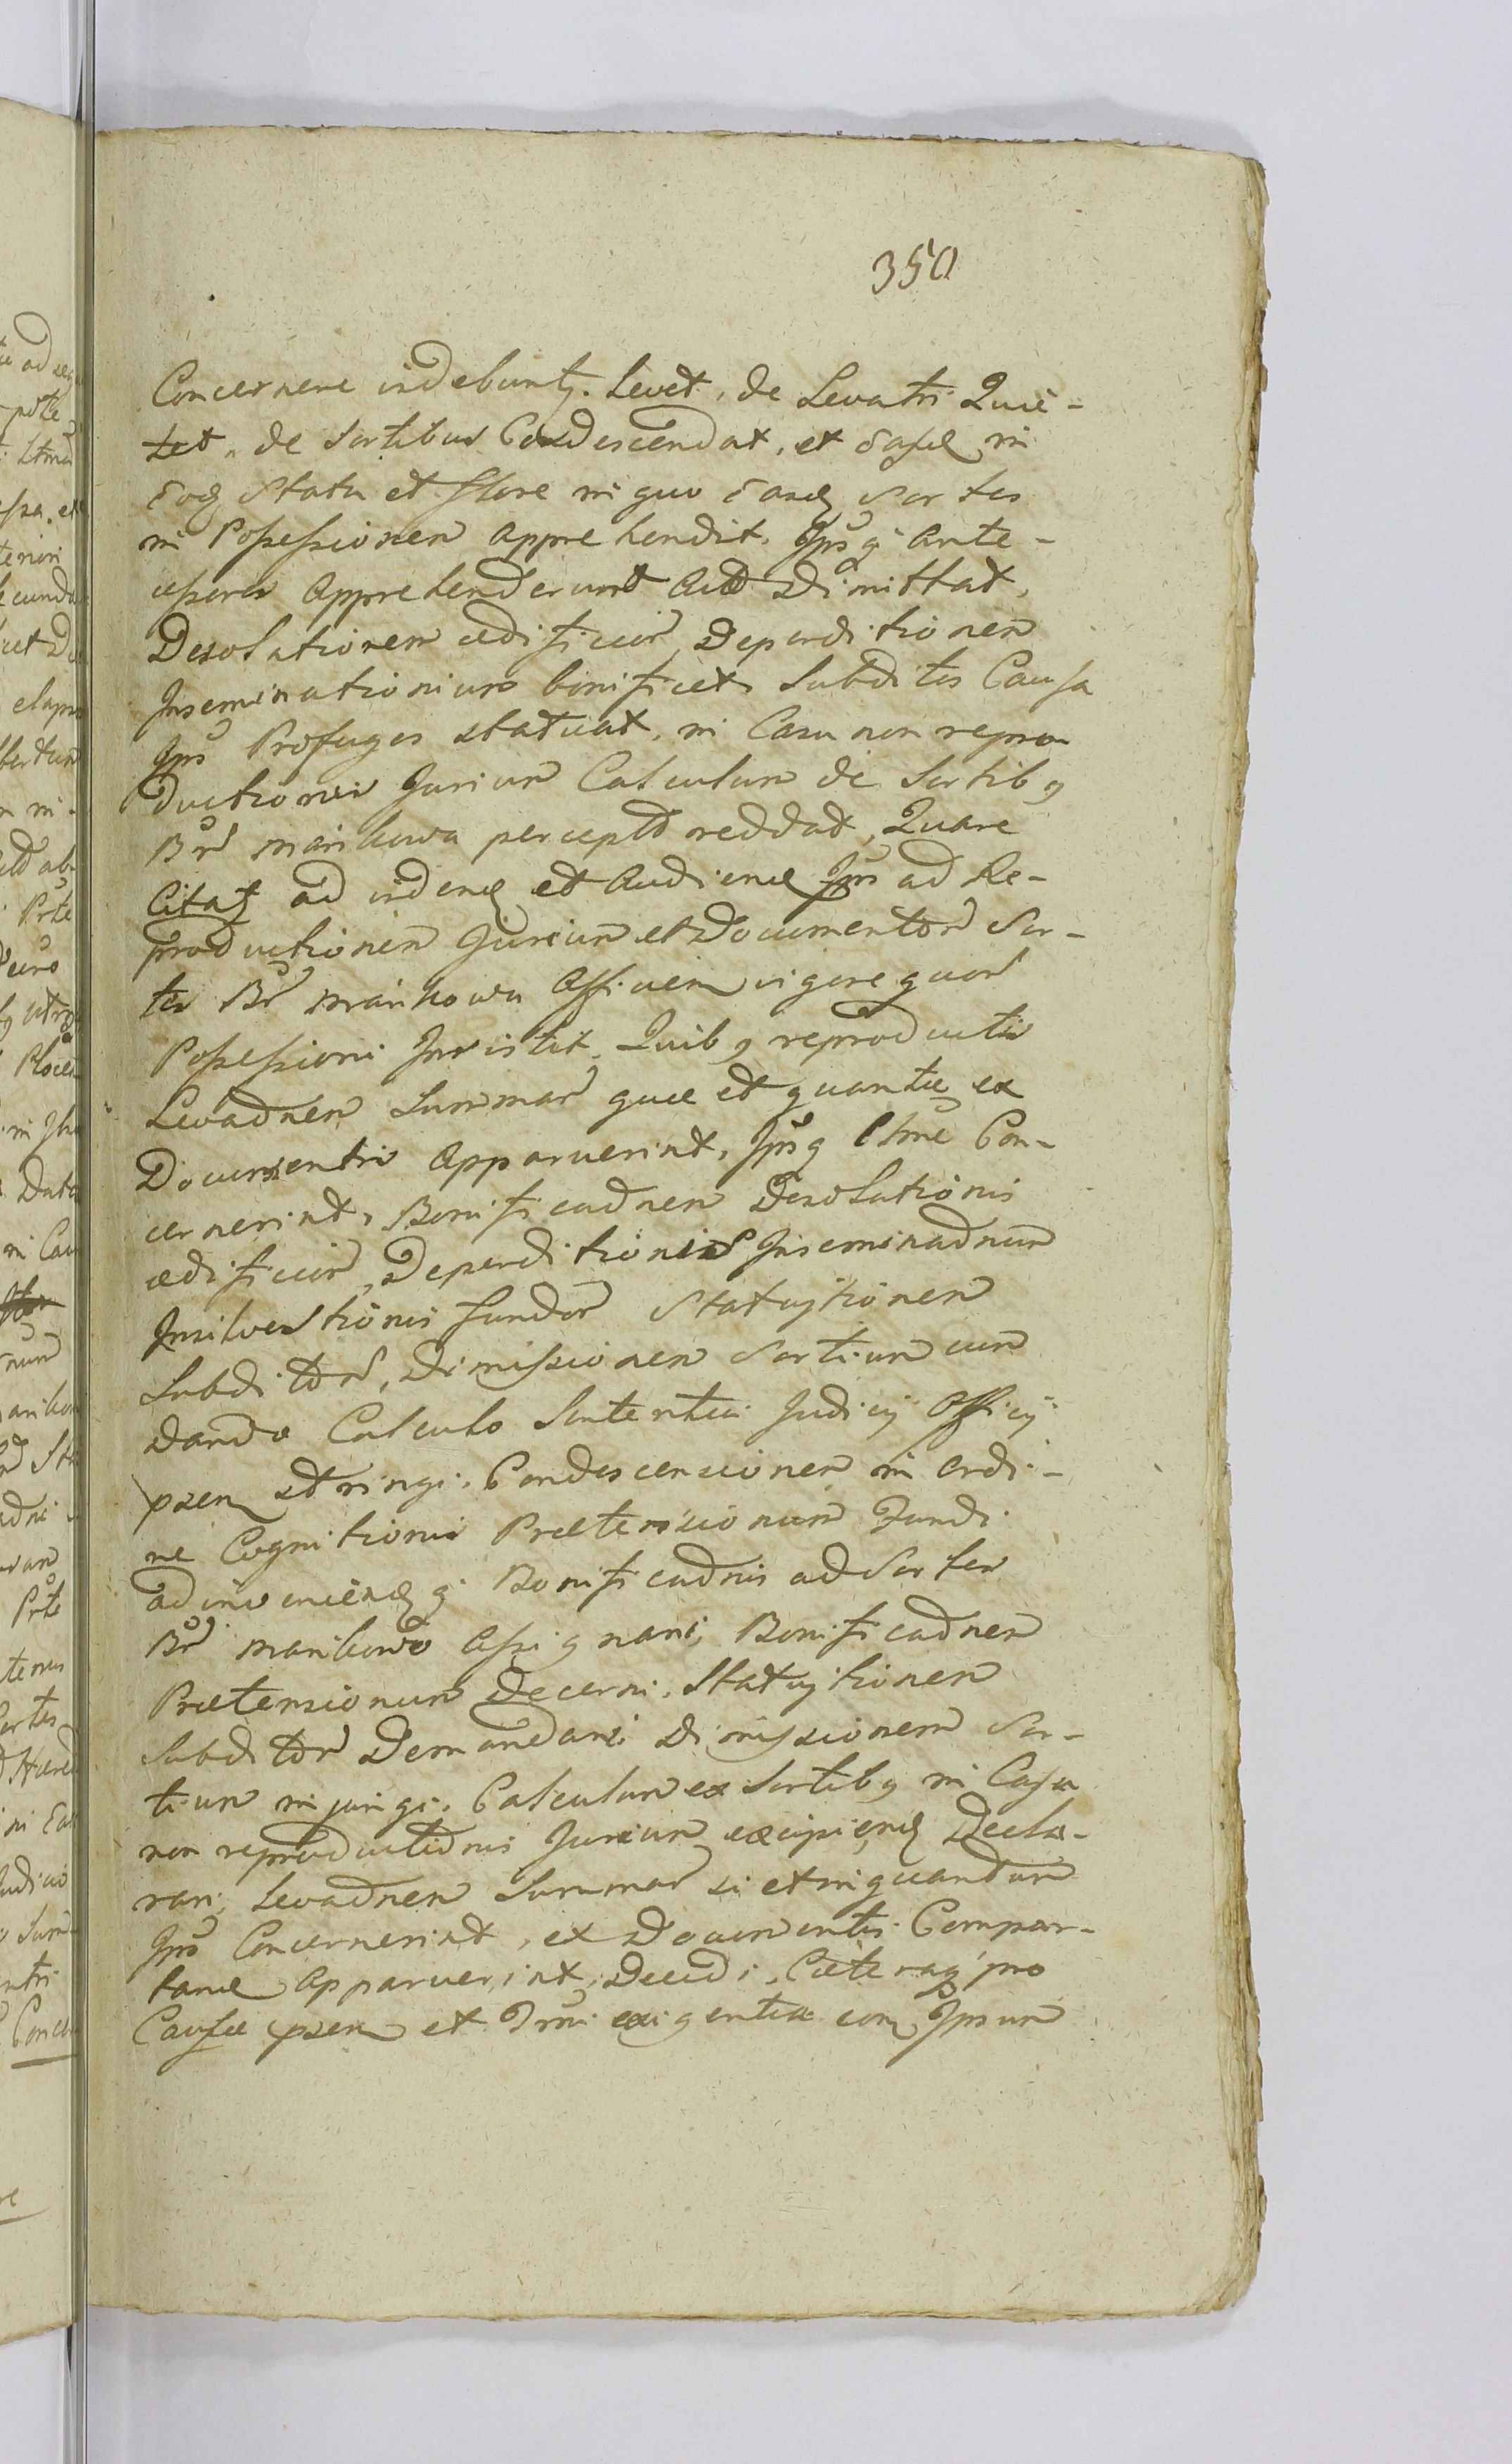 350
Concernere videbunt. Levet, de Levatis Quie-
tet, de Sortibus Condescendat, et easd in
eod Statu et flore in quo easd Sortes
in Possessionem apprehendit. Ipsq Ante-
cessores Apprehenderunt Aut Dimittat,
Desolationem ædificior, Deperditionem
Inseminationum bonificet, Subditos Causa
Ips Profugos statuat, in Casu non repro-
ductionis Jurium Calculum de Sortibq
Br Mankowa percept reddat, Quare
Citat ad vidend et Audiend Ips ad Re-
productionem Jurium et Documentor Sor-
tes Br Mankowa Afficien vigore quor
Possessioni Insistit, Quibq reproductis
Levadnem Summar quæ et quantæ ex
Documentis Apparuerint, Ipsq Concer-
cernerint, Bonificadnem Desolationis
ædificior, Deperditionis Inseminadnum
Insilvestrionis fundor Statuitionem
Subditor, Dimissionem Sortium cum
Dando Calculo Sententia Judicij Officij
psen stringi. Condescensionem in ordi-
ne Cognitionis Prætensionum Fundi
adinveniendq Bonificadnis ad Sortes
Br Mankowo Assignari, Bonificadnem
Prætensionum Decerni, Statuitionem
Subditor Demandari Dimissionem Sor-
tium injungi. Calculum ex Sortibq in Casu
non reproductidnis Jurium excipiend Decla-
rari, Levadnem Summar si et inquantum
Ips Concernerint, ex Documentis Compor-
tand Apparuerint, Decidi. Cæteraq pro
Causæ psen et Jris exigentia eon Ipsum